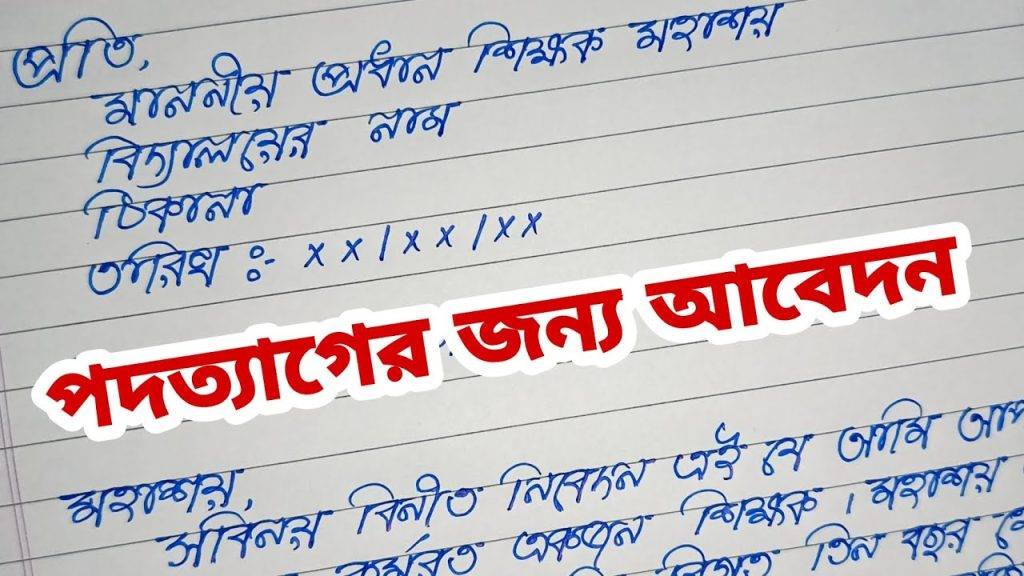 প্রতি,
মাননীয় প্রধান শিক্ষক মহাশয়
বিদ্যালয়ের নাম
ঠিকানা
তারিখ :- xx/xx/xx
পদত্যাগের জন্য আবেদন
মহাশয়,
সবিনয় বিনীত নিবেদন এই যে আমি
কর্মরত একজন শিক্ষক। মহাশয়
বিগত তিন বছর